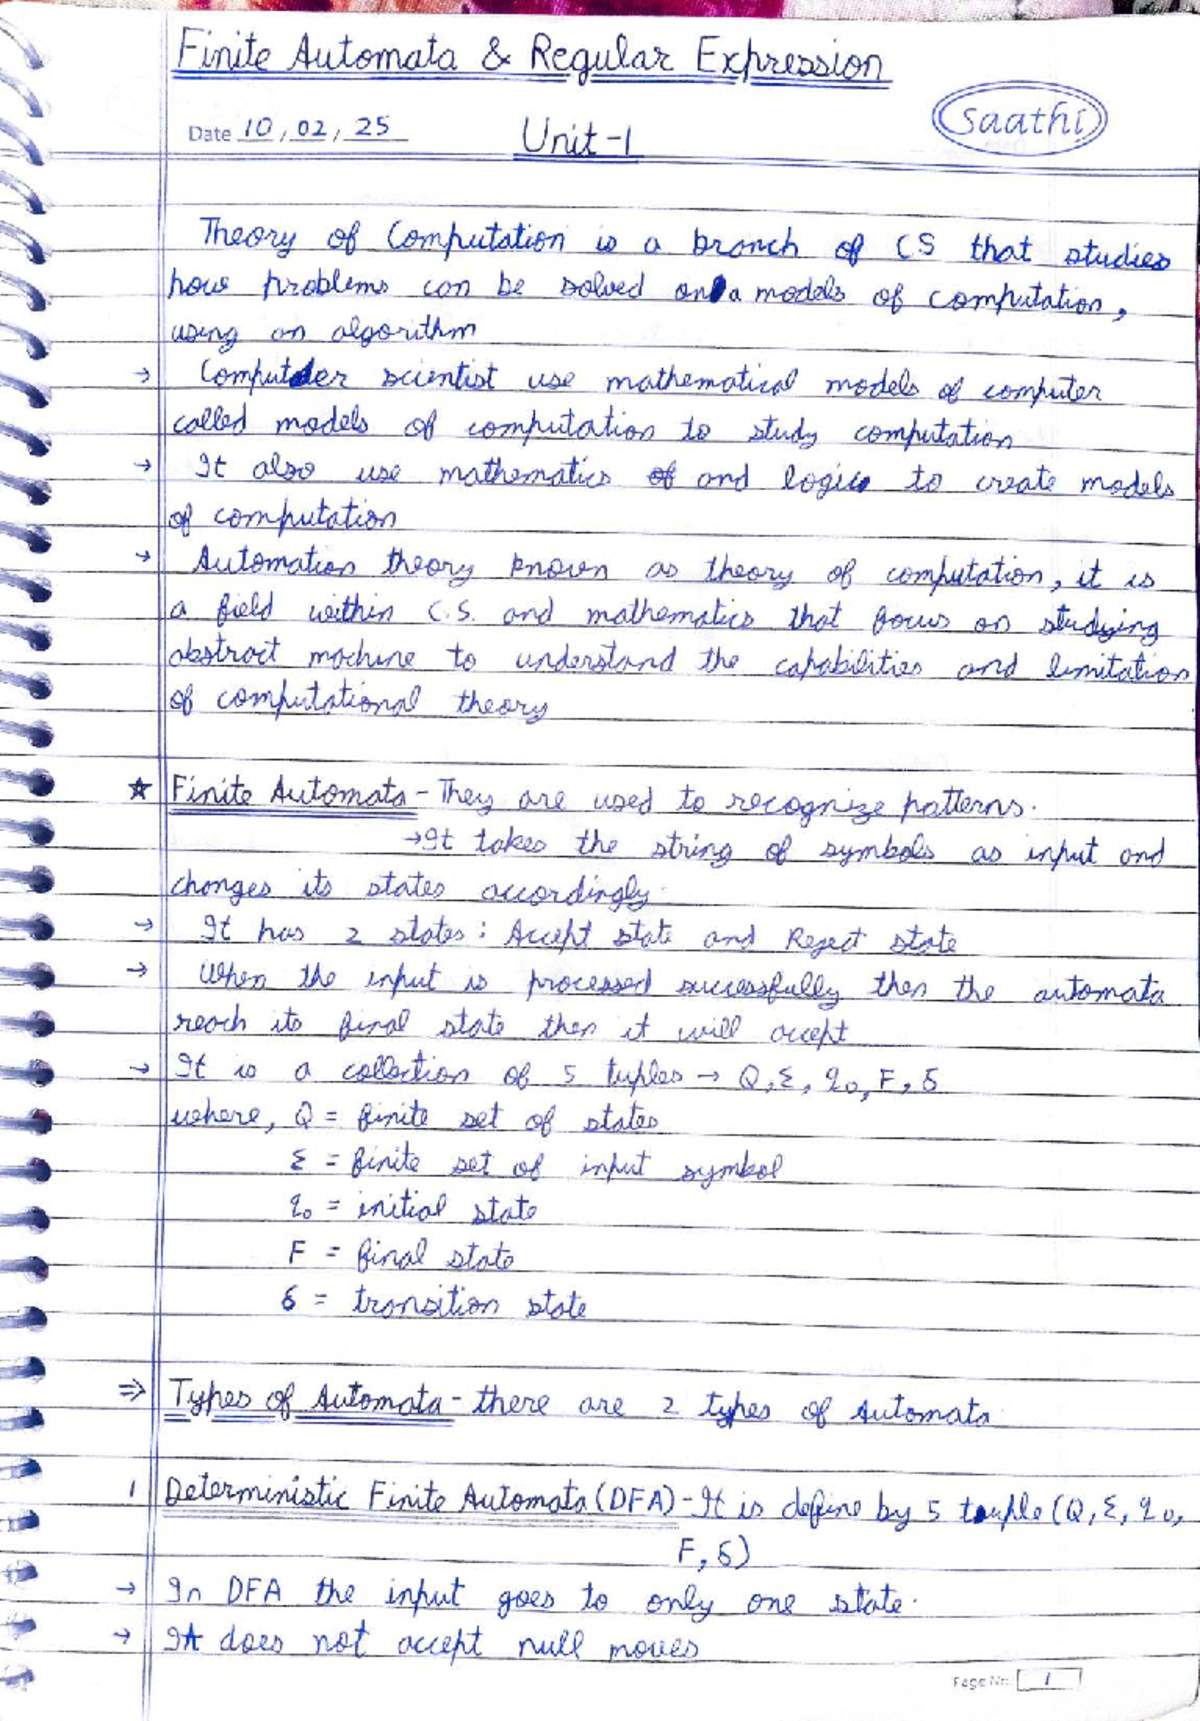 Finite Automata & Regular Expression
Saathi
Date 10 / 02 / 25 Unit-1
Theory of Computation is a branch of CS that studies
how problems can be solved on a models of computation,
using an algorithm
→ Computer scientist use mathematical models of computer
called models of computation to study computation
→ It also use mathematics and logic to create models
of computation
→ Automation theory known as theory of computation, it is
a field within C.S. and mathematics that focus on studying
abstract machine to understand the capabilities and limitation
of computational theory
★ Finite Automata - They are used to recognize patterns.
→ It takes the string of symbols as input and
changes its states accordingly.
→ It has 2 states : Accept state and Reject state
→ When the input is processed successfully then the automata
reach its final state then it will accept
→ It is a collection of 5 tuples → Q, Σ, q0, F, δ
where, Q = finite set of states
Σ = finite set of input symbol
q0 = initial state
F = final state
δ = transition state
⇒ Types of Automata - there are 2 types of Automata
1 Deterministic Finite Automata (DFA) - It is define by 5 touple (Q, Σ, q0,
F, δ)
→ In DFA the input goes to only one state.
→ It does not accept null moves
Page No. 1